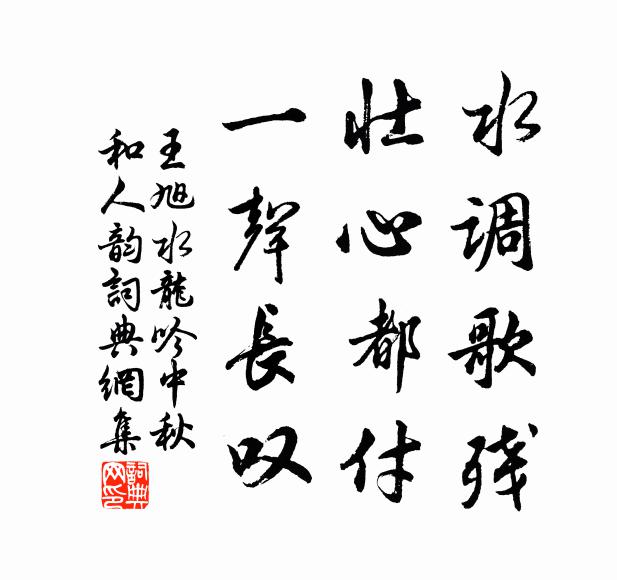 水调歌残
壮心都付
一聲長叹
王旭水龍吟中秋
和人韵詞典網集
詞典网印